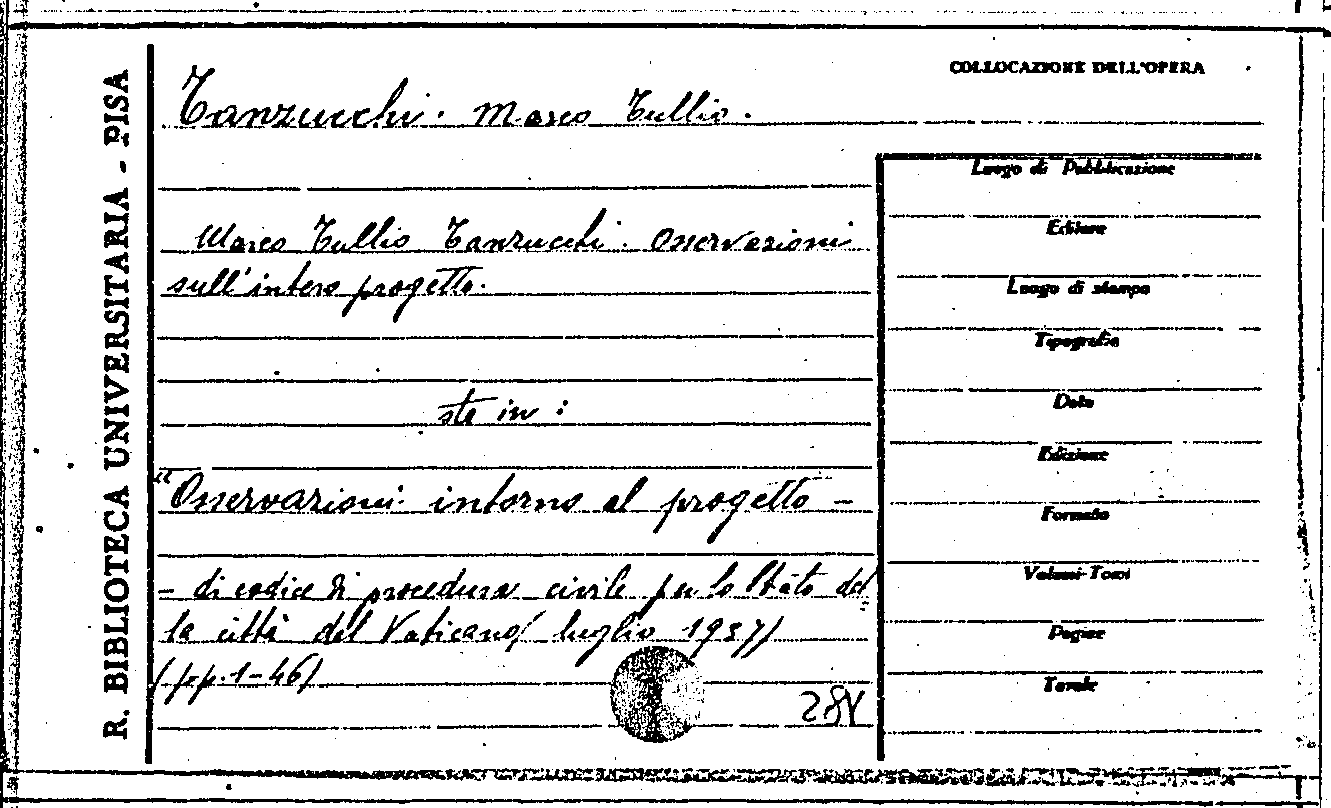 R. BIBLIOTECA UNIVERSITARIA - PISA
COLLOCAZIONE DELL'OPERA
Tanzucchi. Marco Tullio.
Marco Tullio Tanzucchi. Osservazioni
sull'intero progetto.
sta in:
"Osservazioni intorno al progetto -
- di codice di procedura civile per lo Stato del
la città del Vaticano/ luglio 1937/
/pp. 1-46/
Luogo di Pubblicazione
Editore
Luogo di stampa
Tipografia
Data
Edizione
Formato
Volumi-Tomi
Pagine
Tavole